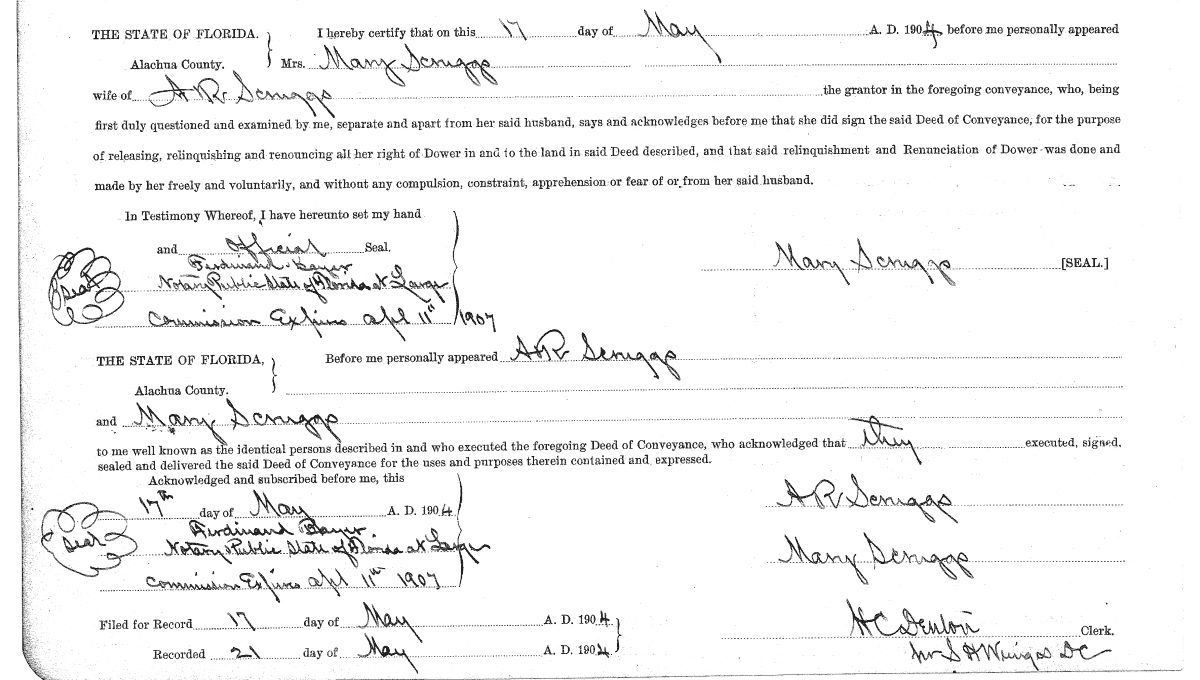 THE STATE OF FLORIDA. } I hereby certify that on this 17 day of May A. D. 1904, before me personally appeared
Alachua County. Mrs. Mary Scruggs
wife of A R Scruggs the grantor in the foregoing conveyance, who, being
first duly questioned and examined by me, separate and apart from her said husband, says and acknowledges before me that she did sign the said Deed of Conveyance, for the purpose
of releasing, relinquishing and renouncing all her right of Dower in and to the land in said Deed described, and that said relinquishment and Renunciation of Dower was done and
made by her freely and voluntarily, and without any compulsion, constraint, apprehension or fear of or from her said husband.
In Testimony Whereof, I have hereunto set my hand
and Official Seal.
Ferdinand Bayer
Mary Scruggs [SEAL.]
Seal
Notary Public State of Florida at Large
Commission Expires Apl 11th 1907
THE STATE OF FLORIDA, } Before me personally appeared A R Scruggs
Alachua County.
and Mary Scruggs
to me well known as the identical persons described in and who executed the foregoing Deed of Conveyance, who acknowledged that they executed, signed,
sealed and delivered the said Deed of Conveyance for the uses and purposes therein contained and expressed.
Acknowledged and subscribed before me, this
17th day of May A. D. 1904
A R Scruggs
Ferdinand Bayer
Seal
Notary Public State of Florida at Large
Mary Scruggs
Commission Expires Apl 11th 1907
Filed for Record 17 day of May A. D. 1904
H C Denton Clerk.
Recorded 21 day of May A. D. 1904
S H DC